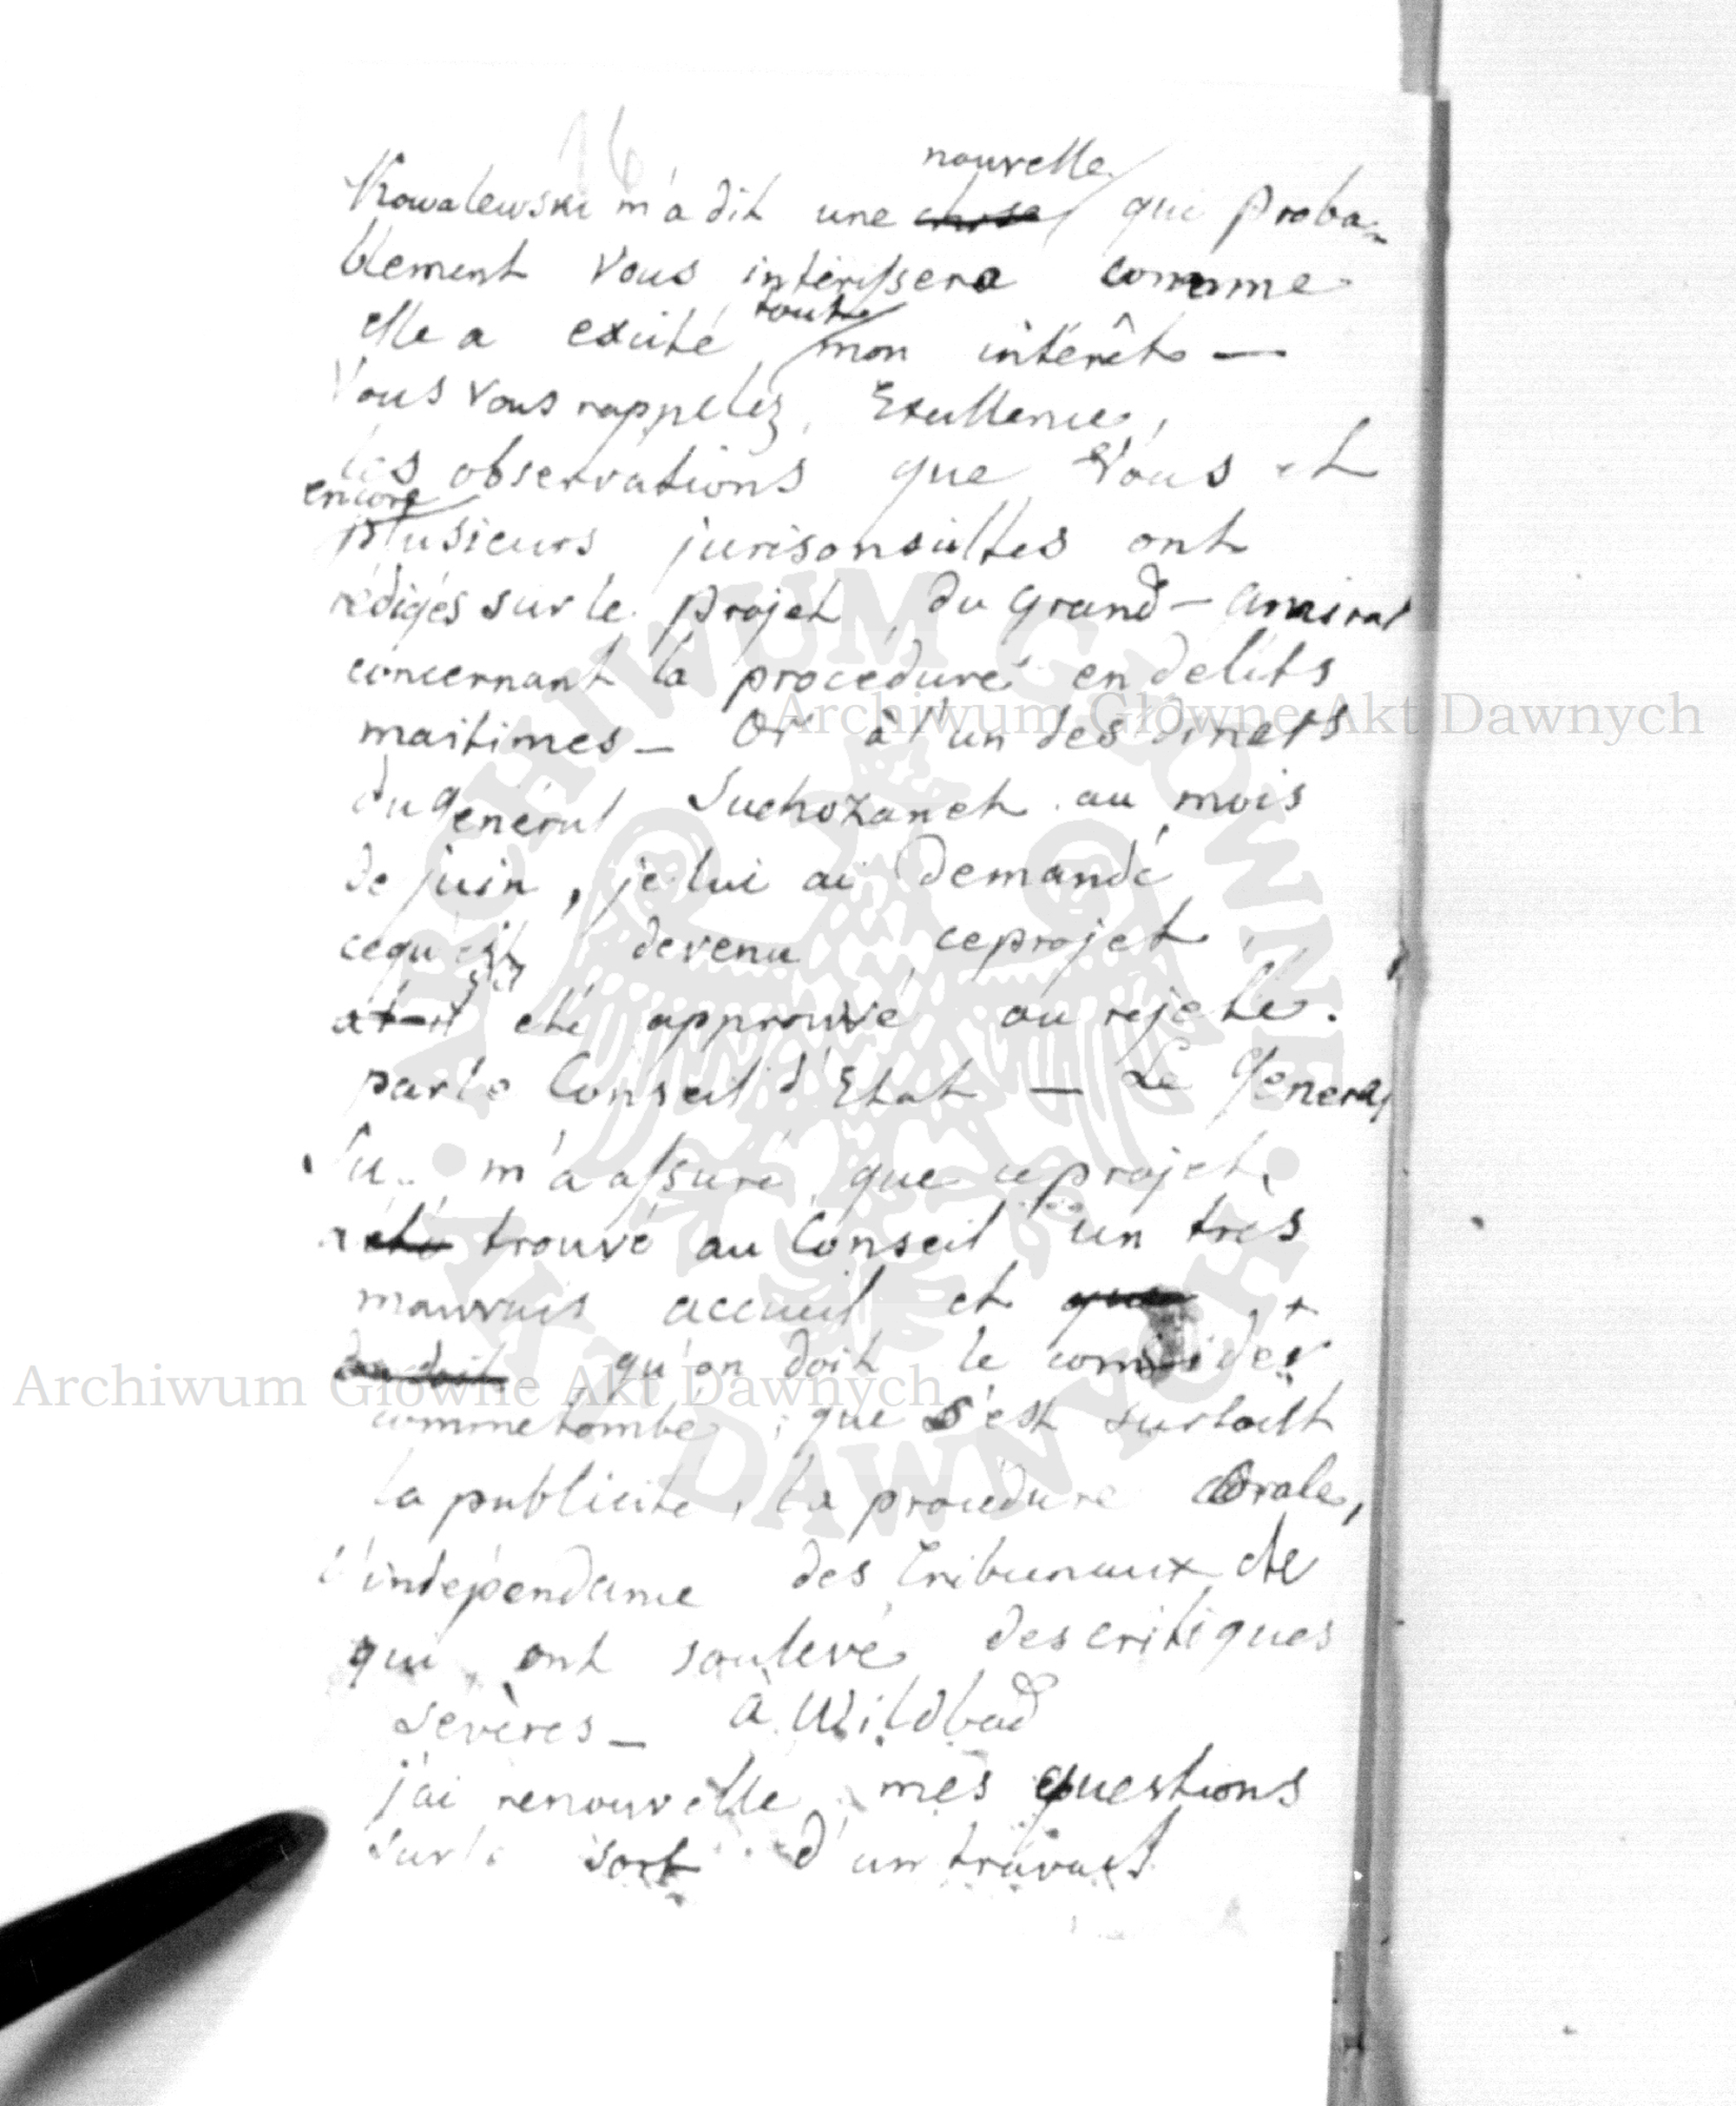 16
nouvelle
Kowalewski m'a dit une chose qui proba-
blement Vous intérissera comme
toute
elle a excité mon intérêt —
Vous Vous rappelez, Excellence,
les observations que Vous et
encore
plusieurs jurisonsultes ont
rédigés sur le projet du grand-amiral
concernant la procedure en delits
maritimes — Or à l'un des diners
du général Suchozaneth au mois
de juin, je lui ai demandé
cequ'est devenu ceprojet,
s'il
a t-il eté approuvé ou rejeté.
par le Conseil d'Etat — Le General
Su. m'a assuré, que ceprojet
a eté trouvé au Conseil un très
mauvais acceuil et que
on doit qu'on doit le considér
comme tombé; que c'est surtout
la publicité, la procédure orale,
l'indépendance des tribunaux etc
qui ont soulevé des critiques
sevères — à Wildbad
j'ai renouvellé mes questions
sur le sort d'un travail
Archiwum Główne Akt Dawnych
Archiwum Główne Akt Dawnych
ARCHIWUM GŁÓWNE AKT DAWNYCH